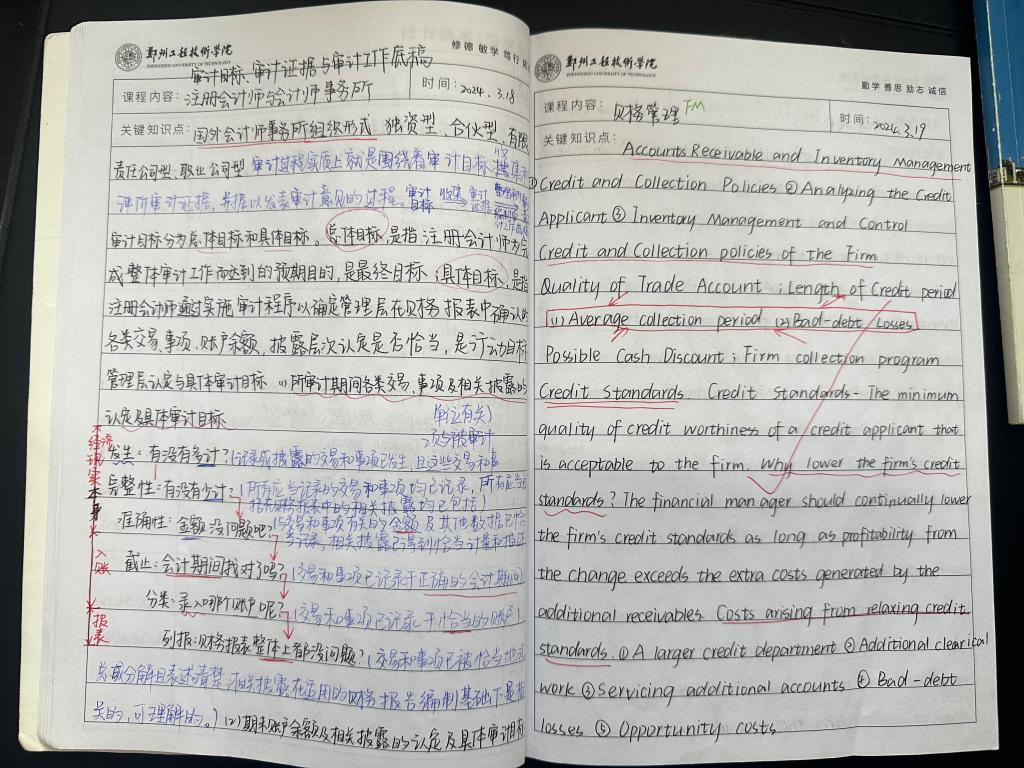 郑州工程技术学院
ZHENGZHOU UNIVERSITY OF TECHNOLOGY
修德 敏学 笃行
审计目标、审计证据与审计工作底稿
课程内容: 注册会计师与会计师事务所
时间: 2024.3.18
关键知识点: 国外会计师事务所组织形式 独资型、合伙型、有限
责任公司型、职业公司型 审计过程实质上就是围绕着审计目标收集和
评价审计证据,并据以发表审计意见的过程。审计目标 收集审计证据
审计目标分为总体目标和具体目标。总体目标,是指注册会计师为完
成整体审计工作而达到的预期目的,是最终目标;具体目标,是指
注册会计师通过实施审计程序以确定管理层在财务报表中确认的
各类交易、事项、账户余额,披露层次认定是否恰当,是行动目标
管理层认定与具体审计目标 (1)所审计期间各类交易、事项及相关披露的
认定及具体审计目标
单位有关)
项与被审计
经济现实本身
发生: 有没有多计?(记录或披露的交易和事项已发生,且这些交易和事
完整性: 有没有少计?(所有应当记录的交易和事项均已记录,所有应当包
括在财务报表中的相关披露均已包括)
准确性: 金额没问题吧?(与交易和事项有关的金额及其他数据已恰
当记录,相关披露已得到恰当计量和描述
入账
截止: 会计期间找对了吗?(交易和事项已记录于正确的会计期间)
分类: 录入哪个账户呢?(交易和事项已记录于恰当的账户)
报表
列报: 财务报表整体上都没问题?(交易和事项已被恰当地汇
总或分解且表述清楚,相关披露在适用的财务报告编制基础下是相
关的,可理解的。)(2)期末账户余额及相关披露的认定及具体审计目标
郑州工程技术学院
ZHENGZHOU UNIVERSITY OF TECHNOLOGY
勤学 善思 励志 诚信
课程内容: 财务管理 FM
时间: 2024.3.19
关键知识点:
Accounts Receivable and Inventory Management
① Credit and Collection Policies ② Analyzing the Credit
Applicant ③ Inventory Management and Control
Credit and Collection policies of the Firm
Quality of Trade Account ; Length of Credit period
(1) Average collection period (2) Bad-debt Losses
Possible Cash Discount ; Firm collection program
Credit Standards. Credit Standards - The minimum
quality of credit worthiness of a credit applicant that
is acceptable to the firm. Why lower the firm's credit
standards? The financial manager should continually lower
the firm's credit standards as long as profitability from
the change exceeds the extra costs generated by the
additional receivables. Costs arising from relaxing credit
standards. ① A larger credit department ② Additional clearical
work ③ Servicing additional accounts ④ Bad-debt
losses ⑤ Opportunity costs